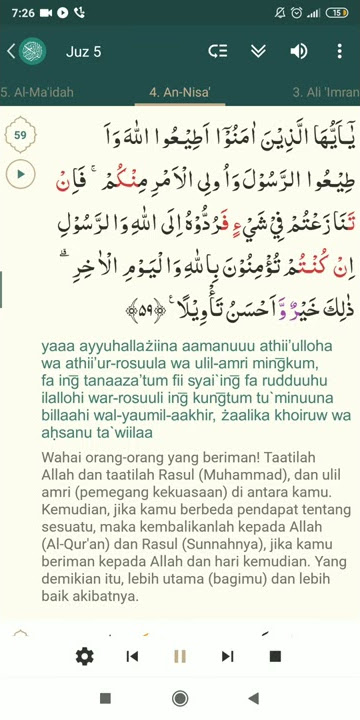 7:26
15
Juz 5
5. Al-Ma'idah
4. An-Nisa'
3. Ali 'Imran
59
يٰٓاَيُّهَا الَّذِيْنَ اٰمَنُوْٓا اَطِيْعُوا اللّٰهَ وَاَ
طِيْعُوا الرَّسُوْلَ وَاُولِى الْاَمْرِ مِنْكُمْ ۚ فَاِنْ
تَنَازَعْتُمْ فِيْ شَيْءٍ فَرُدُّوْهُ اِلَى اللّٰهِ وَالرَّسُوْلِ
اِنْ كُنْتُمْ تُؤْمِنُوْنَ بِاللّٰهِ وَالْيَوْمِ الْاٰخِرِ ۗ
ذٰلِكَ خَيْرٌ وَّاَحْسَنُ تَأْوِيْلًا ࣖ ﴿٥٩﴾
yaaa ayyuhallażiina aamanuuu athii'ulloha
wa athii'ur-rosuula wa ulil-amri mingkum,
fa ing tanaaza'tum fii syai`ing fa rudduuhu
ilallohi war-rosuuli ing kungtum tu`minuuna
billaahi wal-yaumil-aakhir, żaalika khoiruw wa
aḥsanu ta`wiilaa
Wahai orang-orang yang beriman! Taatilah
Allah dan taatilah Rasul (Muhammad), dan ulil
amri (pemegang kekuasaan) di antara kamu.
Kemudian, jika kamu berbeda pendapat tentang
sesuatu, maka kembalikanlah kepada Allah
(Al-Qur'an) dan Rasul (Sunnahnya), jika kamu
beriman kepada Allah dan hari kemudian. Yang
demikian itu, lebih utama (bagimu) dan lebih
baik akibatnya.